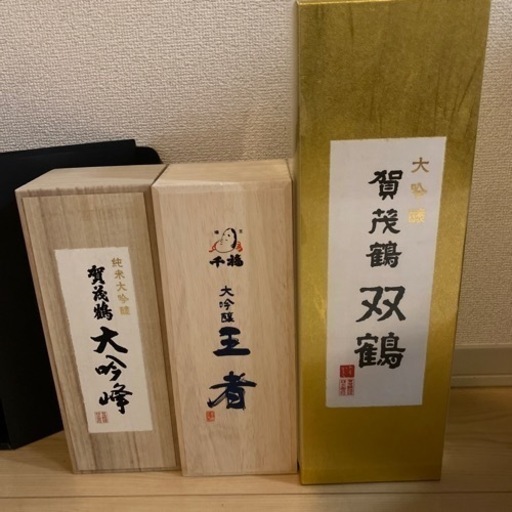 純米大吟醸
賀茂鶴
大吟峰
千福
大吟醸
王者
大吟醸
賀茂鶴
双鶴